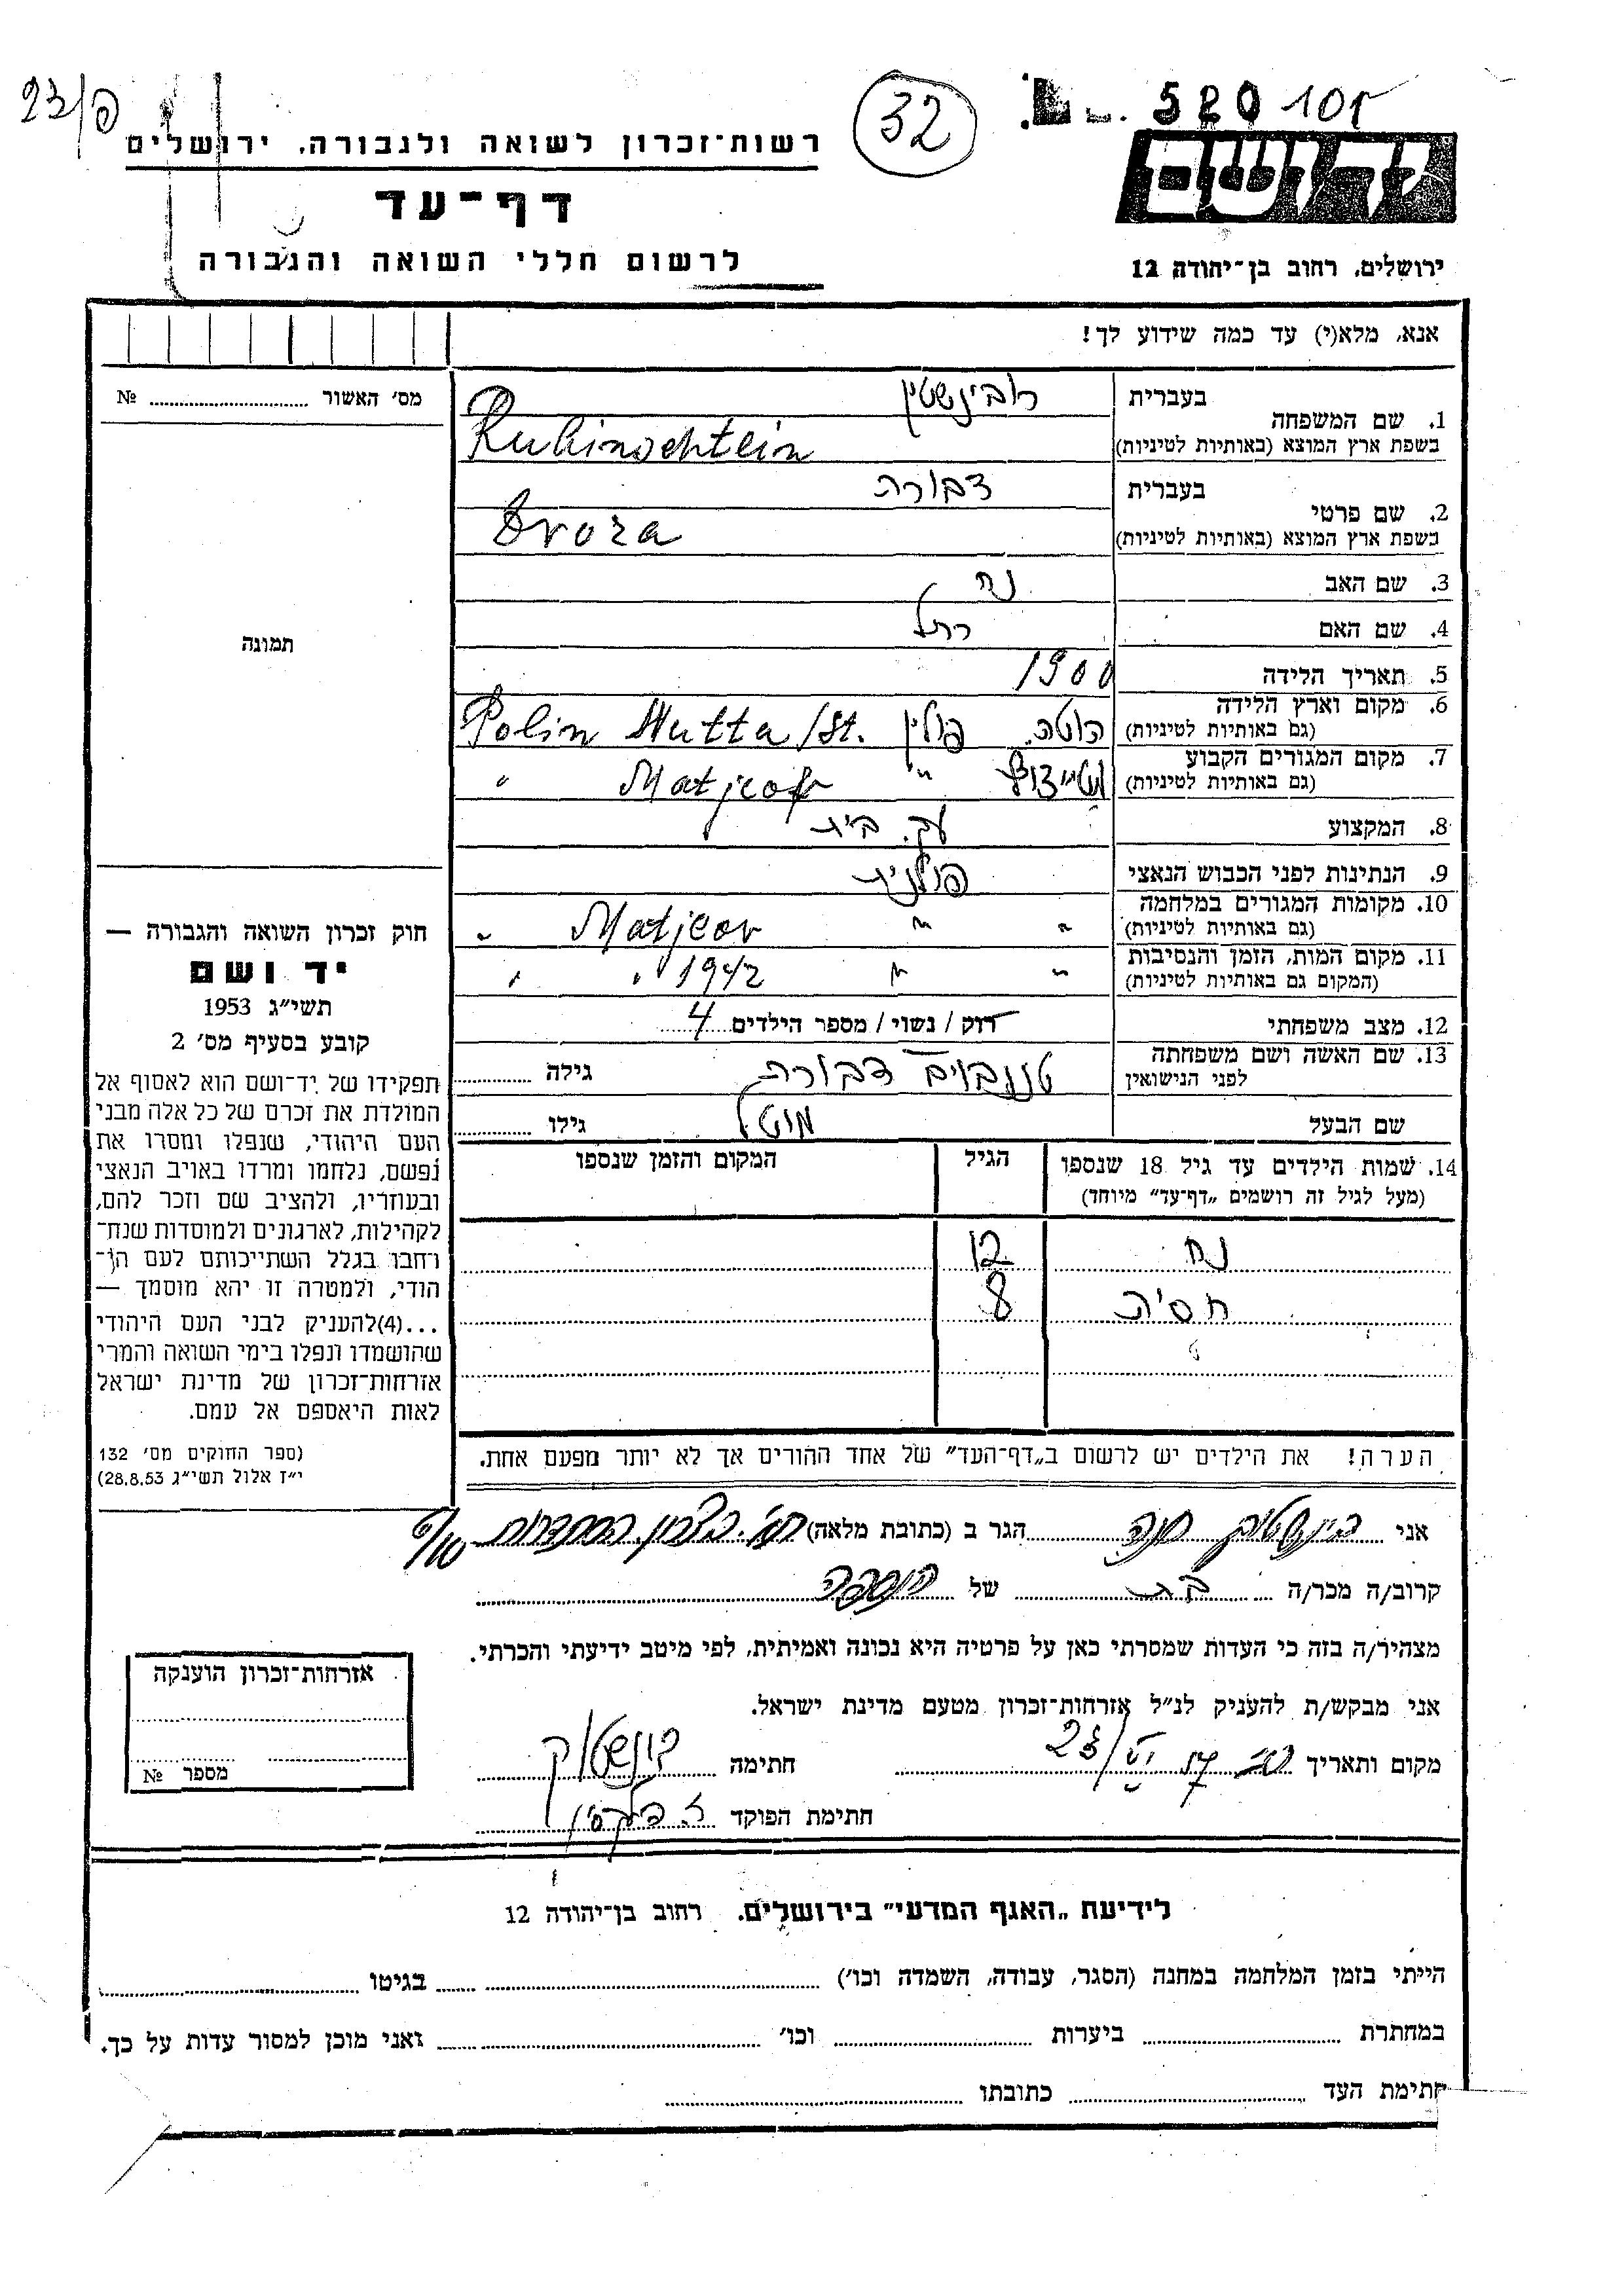 פ/23
32
520 101
רשות־זכרון לשואה ולגבורה, ירושלים
דף־עד
לרשום חללי השואה והגבורה
יד ושם
ירושלים, רחוב בן־יהודה 12
אנא, מלא(י) עד כמה שידוע לך!
מס׳ האשור № 
1. שם המשפחה
בעברית רובינשטין
בשפת ארץ המוצא (באותיות לטיניות) Rubinschtein
2. שם פרטי
בעברית דבורה
בשפת ארץ המוצא (באותיות לטיניות) Dvora
3. שם האב נח
4. שם האם רחל
5. תאריך הלידה 1900
6. מקום וארץ הלידה
(גם באותיות לטיניות) הוטה. פולין Polin Hutta/St.
7. מקום המגורים הקבוע
(גם באותיות לטיניות) " Matjeof "
8. המקצוע עק. בית
9. הנתינות לפני הכבוש הנאצי פולנית
10. מקומות המגורים במלחמה
(גם באותיות לטיניות) " " Matjeov "
11. מקום המות, הזמן והנסיבות
(המקום גם באותיות לטיניות) " " 1942 " "
12. מצב משפחתי רוק / נשוי / מספר הילדים 4
13. שם האשה ושם משפחתה
לפני הנישואין טננבוים דבורה גילה
שם הבעל מוטל גילו
14. שמות הילדים עד גיל 18 שנספו
(מעל לגיל זה רושמים „דף־עד” מיוחד)
הגיל
המקום והזמן שנספו
נח 12
חסיה 8
הערה! את הילדים יש לרשום ב„דף־העד” של אחד ההורים אך לא יותר מפעם אחת.
תמונה
חוק זכרון השואה והגבורה —
יד ושם
תשי״ג 1953
קובע בסעיף מס׳ 2
תפקידו של יד־ושם הוא לאסוף אל
המולדת את זכרם של כל אלה מבני
העם היהודי, שנפלו ומסרו את
נפשם, נלחמו ומרדו באויב הנאצי
ובעוזריו, ולהציב שם וזכר להם,
לקהילות, לארגונים ולמוסדות שנח־
רחבו בגלל השתייכותם לעם הי־
הודי, ולמטרה זו יהא מוסמך —
...(4)להעניק לבני העם היהודי
שהושמדו ונפלו בימי השואה והמרי
אזרחות־זכרון של מדינת ישראל
לאות היאספם אל עמם.
(ספר החוקים מס׳ 132
י״ז אלול תשי״ג 28.8.53)
אני חנה הגר ב (כתובת מלאה) 
קרוב/ה מכר/ה בת של הנספה
מצהיר/ה בזה כי העדות שמסרתי כאן על פרטיה היא נכונה ואמיתית, לפי מיטב ידיעתי והכרתי.
אני מבקש/ת להעניק לנ״ל אזרחות־זכרון מטעם מדינת ישראל.
מקום ותאריך חתימה
חתימת הפוקד
אזרחות־זכרון הוענקה
מספר №
לידיעת „האגף המדעי” בירושלים. רחוב בן־יהודה 12
הייתי בזמן המלחמה במחנה (הסגר, עבודה, השמדה וכו׳) בגיטו
במחתרת ביערות וכו׳ ואני מוכן למסור עדות על כך.
חתימת העד כתובתו